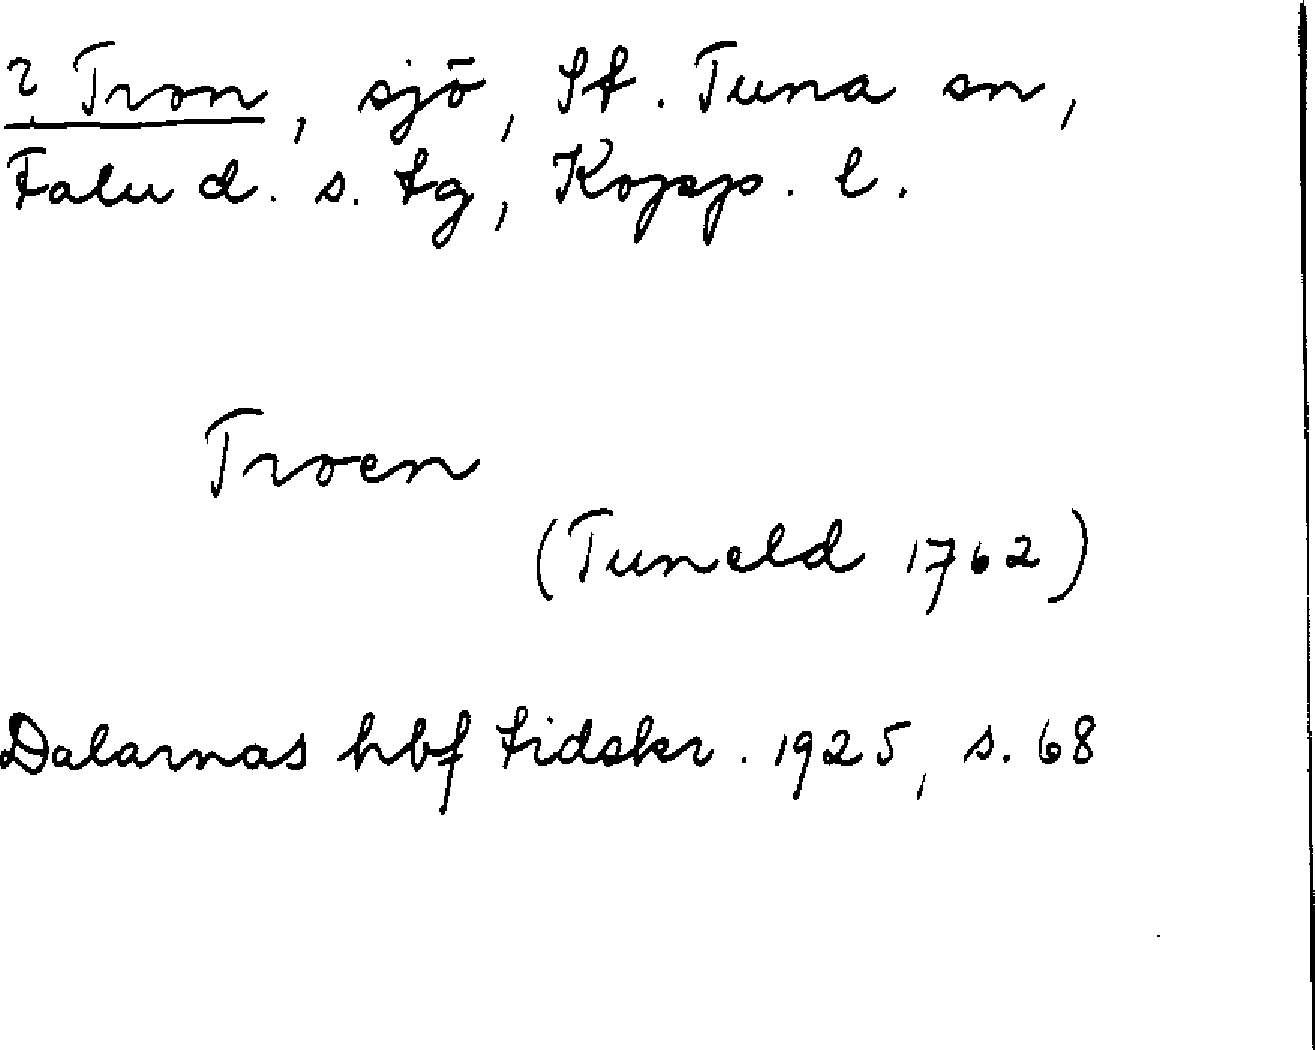 ? Tron, sjö, St. Tuna sn,
Falu d. s. tg, Kopp. l.
Troen
(Tuneld 1762)
Dalarnas hbf tidskr. 1925, s. 68